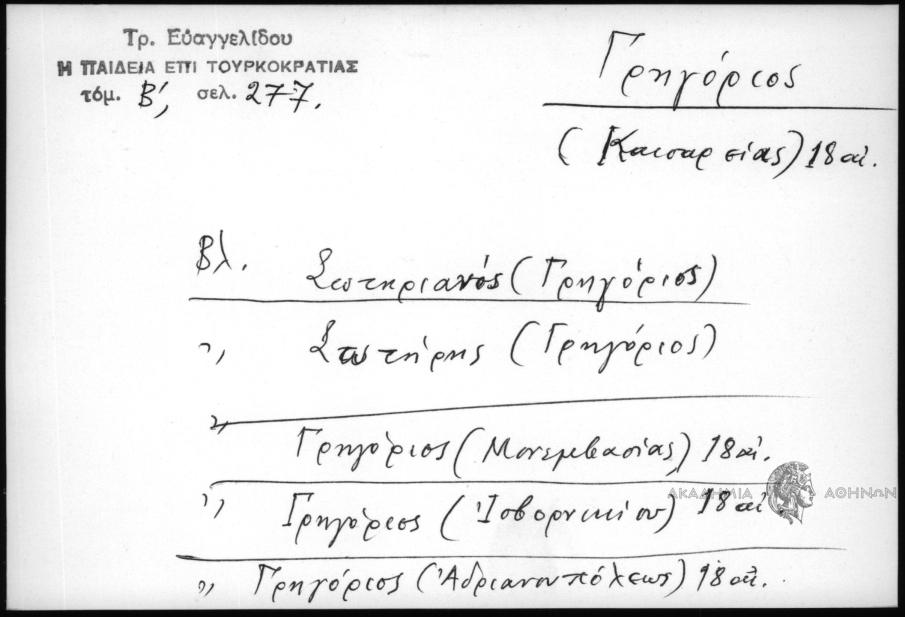 Τρ. Εὐαγγελίδου
Η ΠΑΙΔΕΙΑ ΕΠΙ ΤΟΥΡΚΟΚΡΑΤΙΑΣ
τόμ. Β', σελ. 277.
Γρηγόριος
(Καισαρείας) 18 αἰ.
Βλ. Σωτηριανός (Γρηγόριος)
,, Σωτήρης (Γρηγόριος)
,, Γρηγόριος (Μονεμβασίας) 18 αἰ.
ΑΚΑΔΗΜΙΑ ΑΘΗΝΩΝ
,, Γρηγόριος (Ἰσβορνικίου) 18 αἰ.
,, Γρηγόριος (Ἀδριανουπόλεως) 18 αἰ.